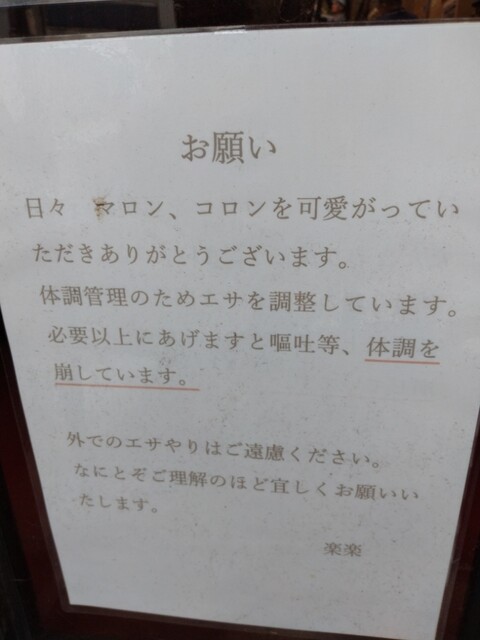 お願い
日々　マロン、コロンを可愛がってい
ただきありがとうございます。
体調管理のためエサを調整しています。
必要以上にあげますと嘔吐等、体調を
崩しています。
外でのエサやりはご遠慮ください。
なにとぞご理解のほど宜しくお願いい
たします。
楽楽